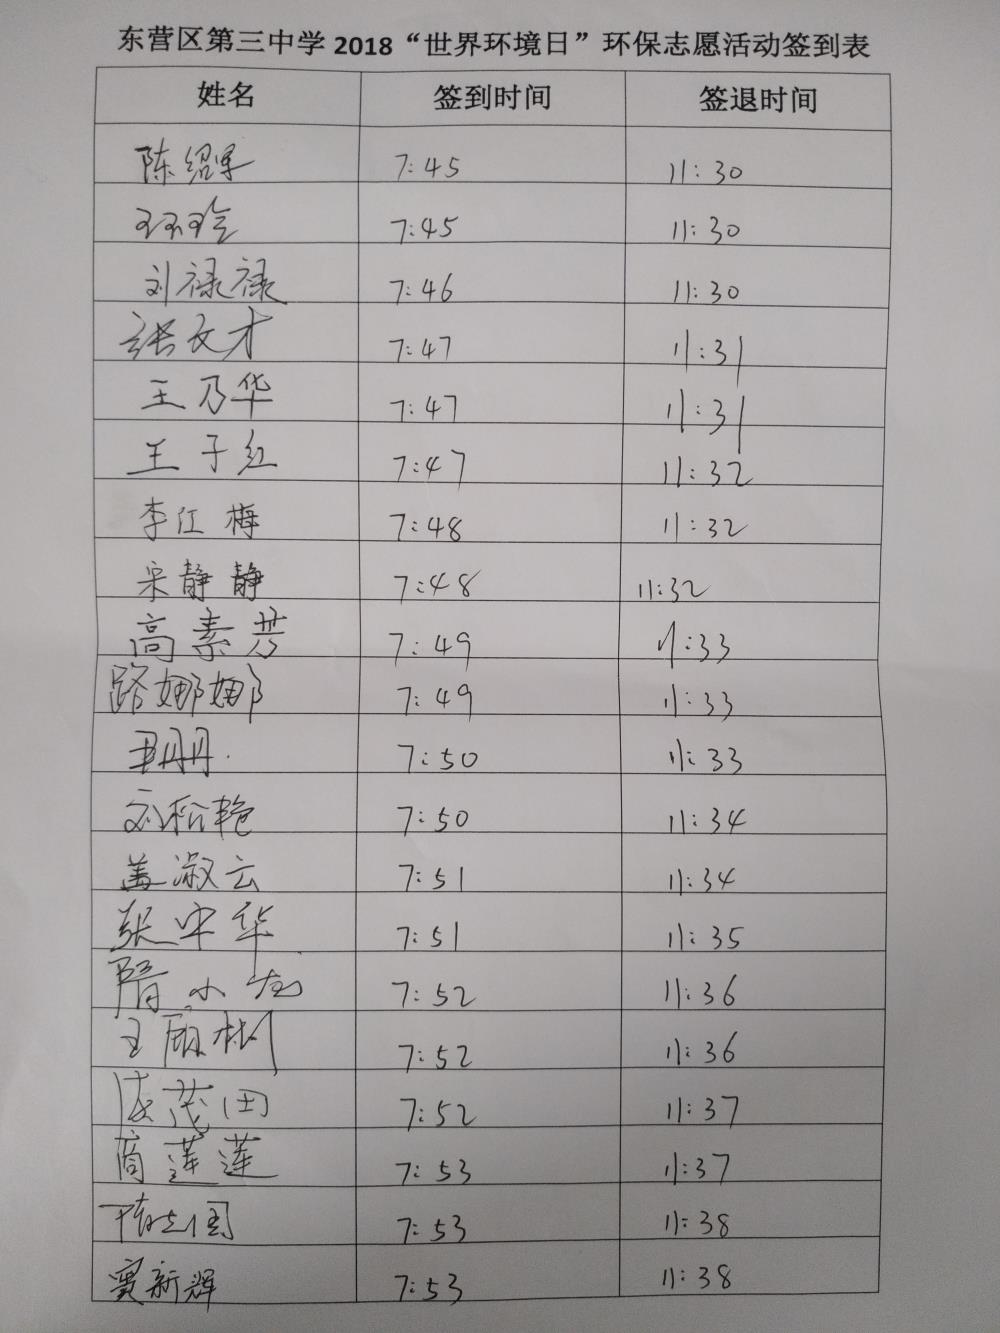 东营区第三中学2018“世界环境日”环保志愿活动签到表
姓名 签到时间 签退时间
陈绍军 7:45 11:30
7:45 11:30
刘禄禄 7:46 11:30
张文才 7:47 11:31
王乃华 7:47 11:31
王子红 7:47 11:32
李江梅 7:48 11:32
宋静静 7:48 11:32
高素芳 7:49 11:33
路娜娜 7:49 11:33
丹丹 7:50 11:33
刘松艳 7:50 11:34
盖淑云 7:51 11:34
张中华 7:51 11:35
隋小龙 7:52 11:36
王树 7:52 11:36
茂田 7:52 11:37
商莲莲 7:53 11:37
国 7:53 11:38
窦新辉 7:53 11:38